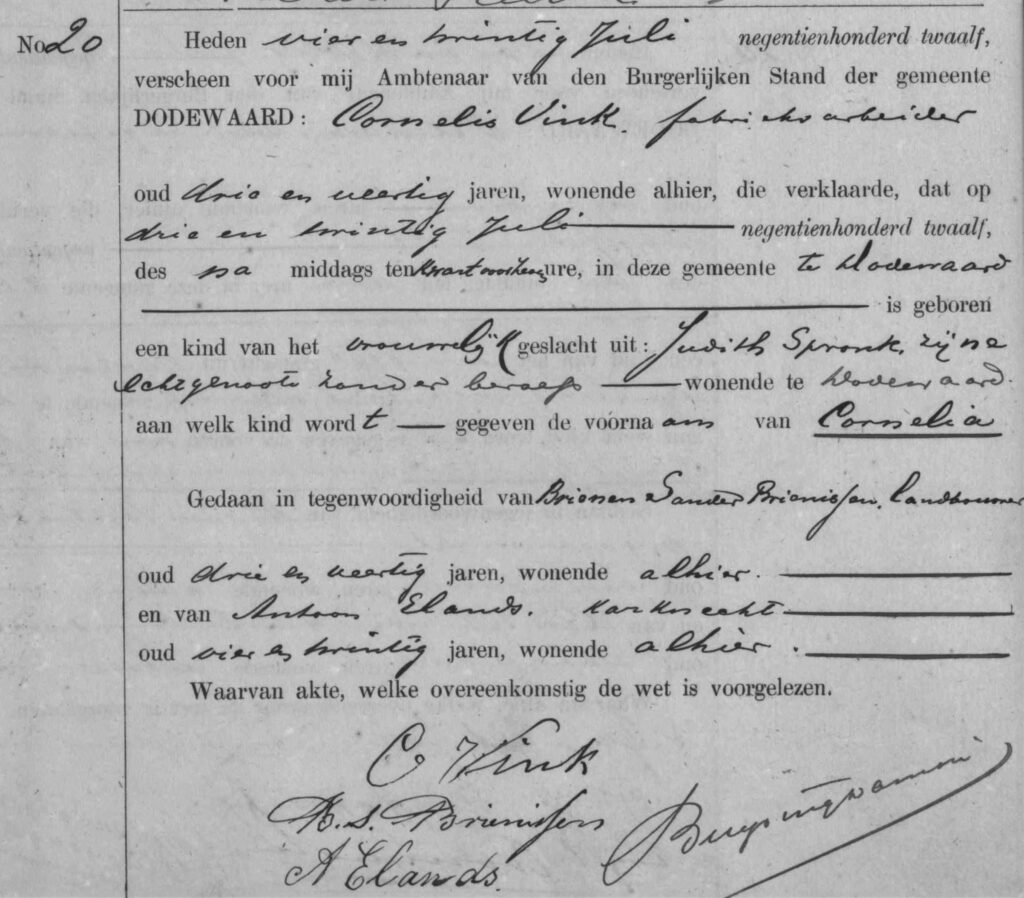 No 20 Heden vier en twintig Juli negentienhonderd twaalf,
verscheen voor mij Ambtenaar van den Burgerlijken Stand der gemeente
DODEWAARD: Cornelis Vink, fabrieksarbeider
oud drie en veertig jaren, wonende alhier, die verklaarde, dat op
drie en twintig Juli negentienhonderd twaalf,
des na middags ten kwart voor ure, in deze gemeente te Dodewaard
is geboren
een kind van het vrouwelijk geslacht uit: Judith Spronk, zijne
echtgenoote zonder beroep wonende te Dodewaard.
aan welk kind wordt gegeven de voornaam van Cornelia
Gedaan in tegenwoordigheid van Sander Brienissen, landbouwer
oud drie en veertig jaren, wonende alhier.
en van Antoon Elands. karknecht
oud vier en twintig jaren, wonende alhier.
Waarvan akte, welke overeenkomstig de wet is voorgelezen.
C Vink
B. S. Brienissen
A Elands.